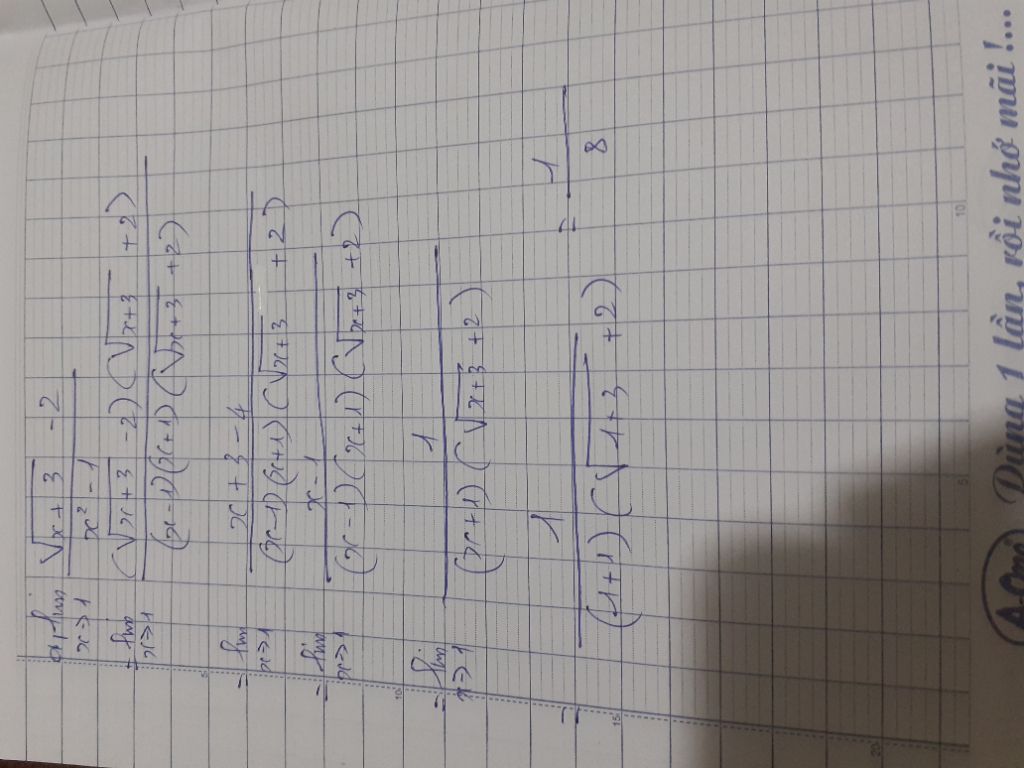 a, lim √(x+3) - 2 / x² - 1
x→1
= lim (√(x+3) - 2)(√(x+3) + 2) / (x-1)(x+1)(√(x+3) + 2)
x→1
= lim x + 3 - 4 / (x-1)(x+1)(√(x+3) + 2)
x→1
= lim x - 1 / (x-1)(x+1)(√(x+3) + 2)
x→1
= lim 1 / (x+1)(√(x+3) + 2)
x→1
= 1 / (1+1)(√(1+3) + 2) = 1 / 8
5
10
15
20
5
10
Dùng 1 lần, rồi nhớ mãi!...